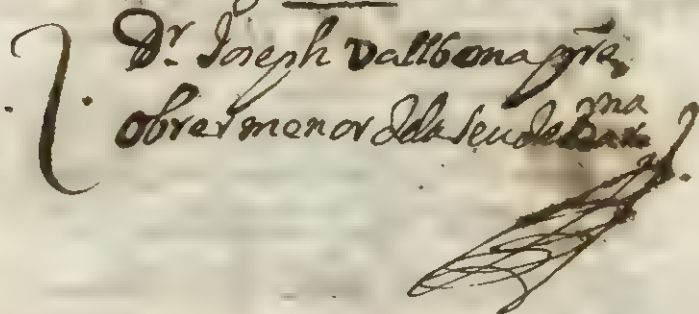 Dr. Joseph Vallbona pre.
obrer menor de la seu de Barna